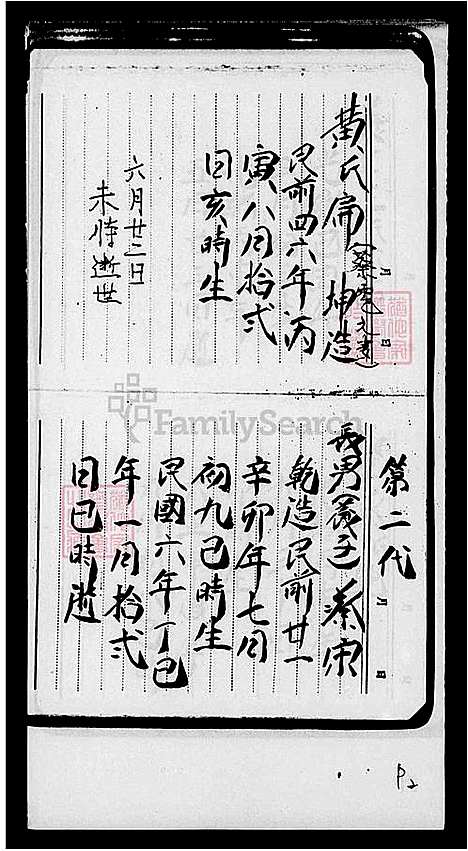 黄氏扁 坤造
民前四六年丙
寅八月拾弍
日亥時生
六月廿二日
未時逝世
第二代
長男(養子)蔡宗
乾造民前廿一
辛卯年七月
初九巳時生
民國六年丁巳
年一月拾弍
日巳時逝
FamilySearch
P2